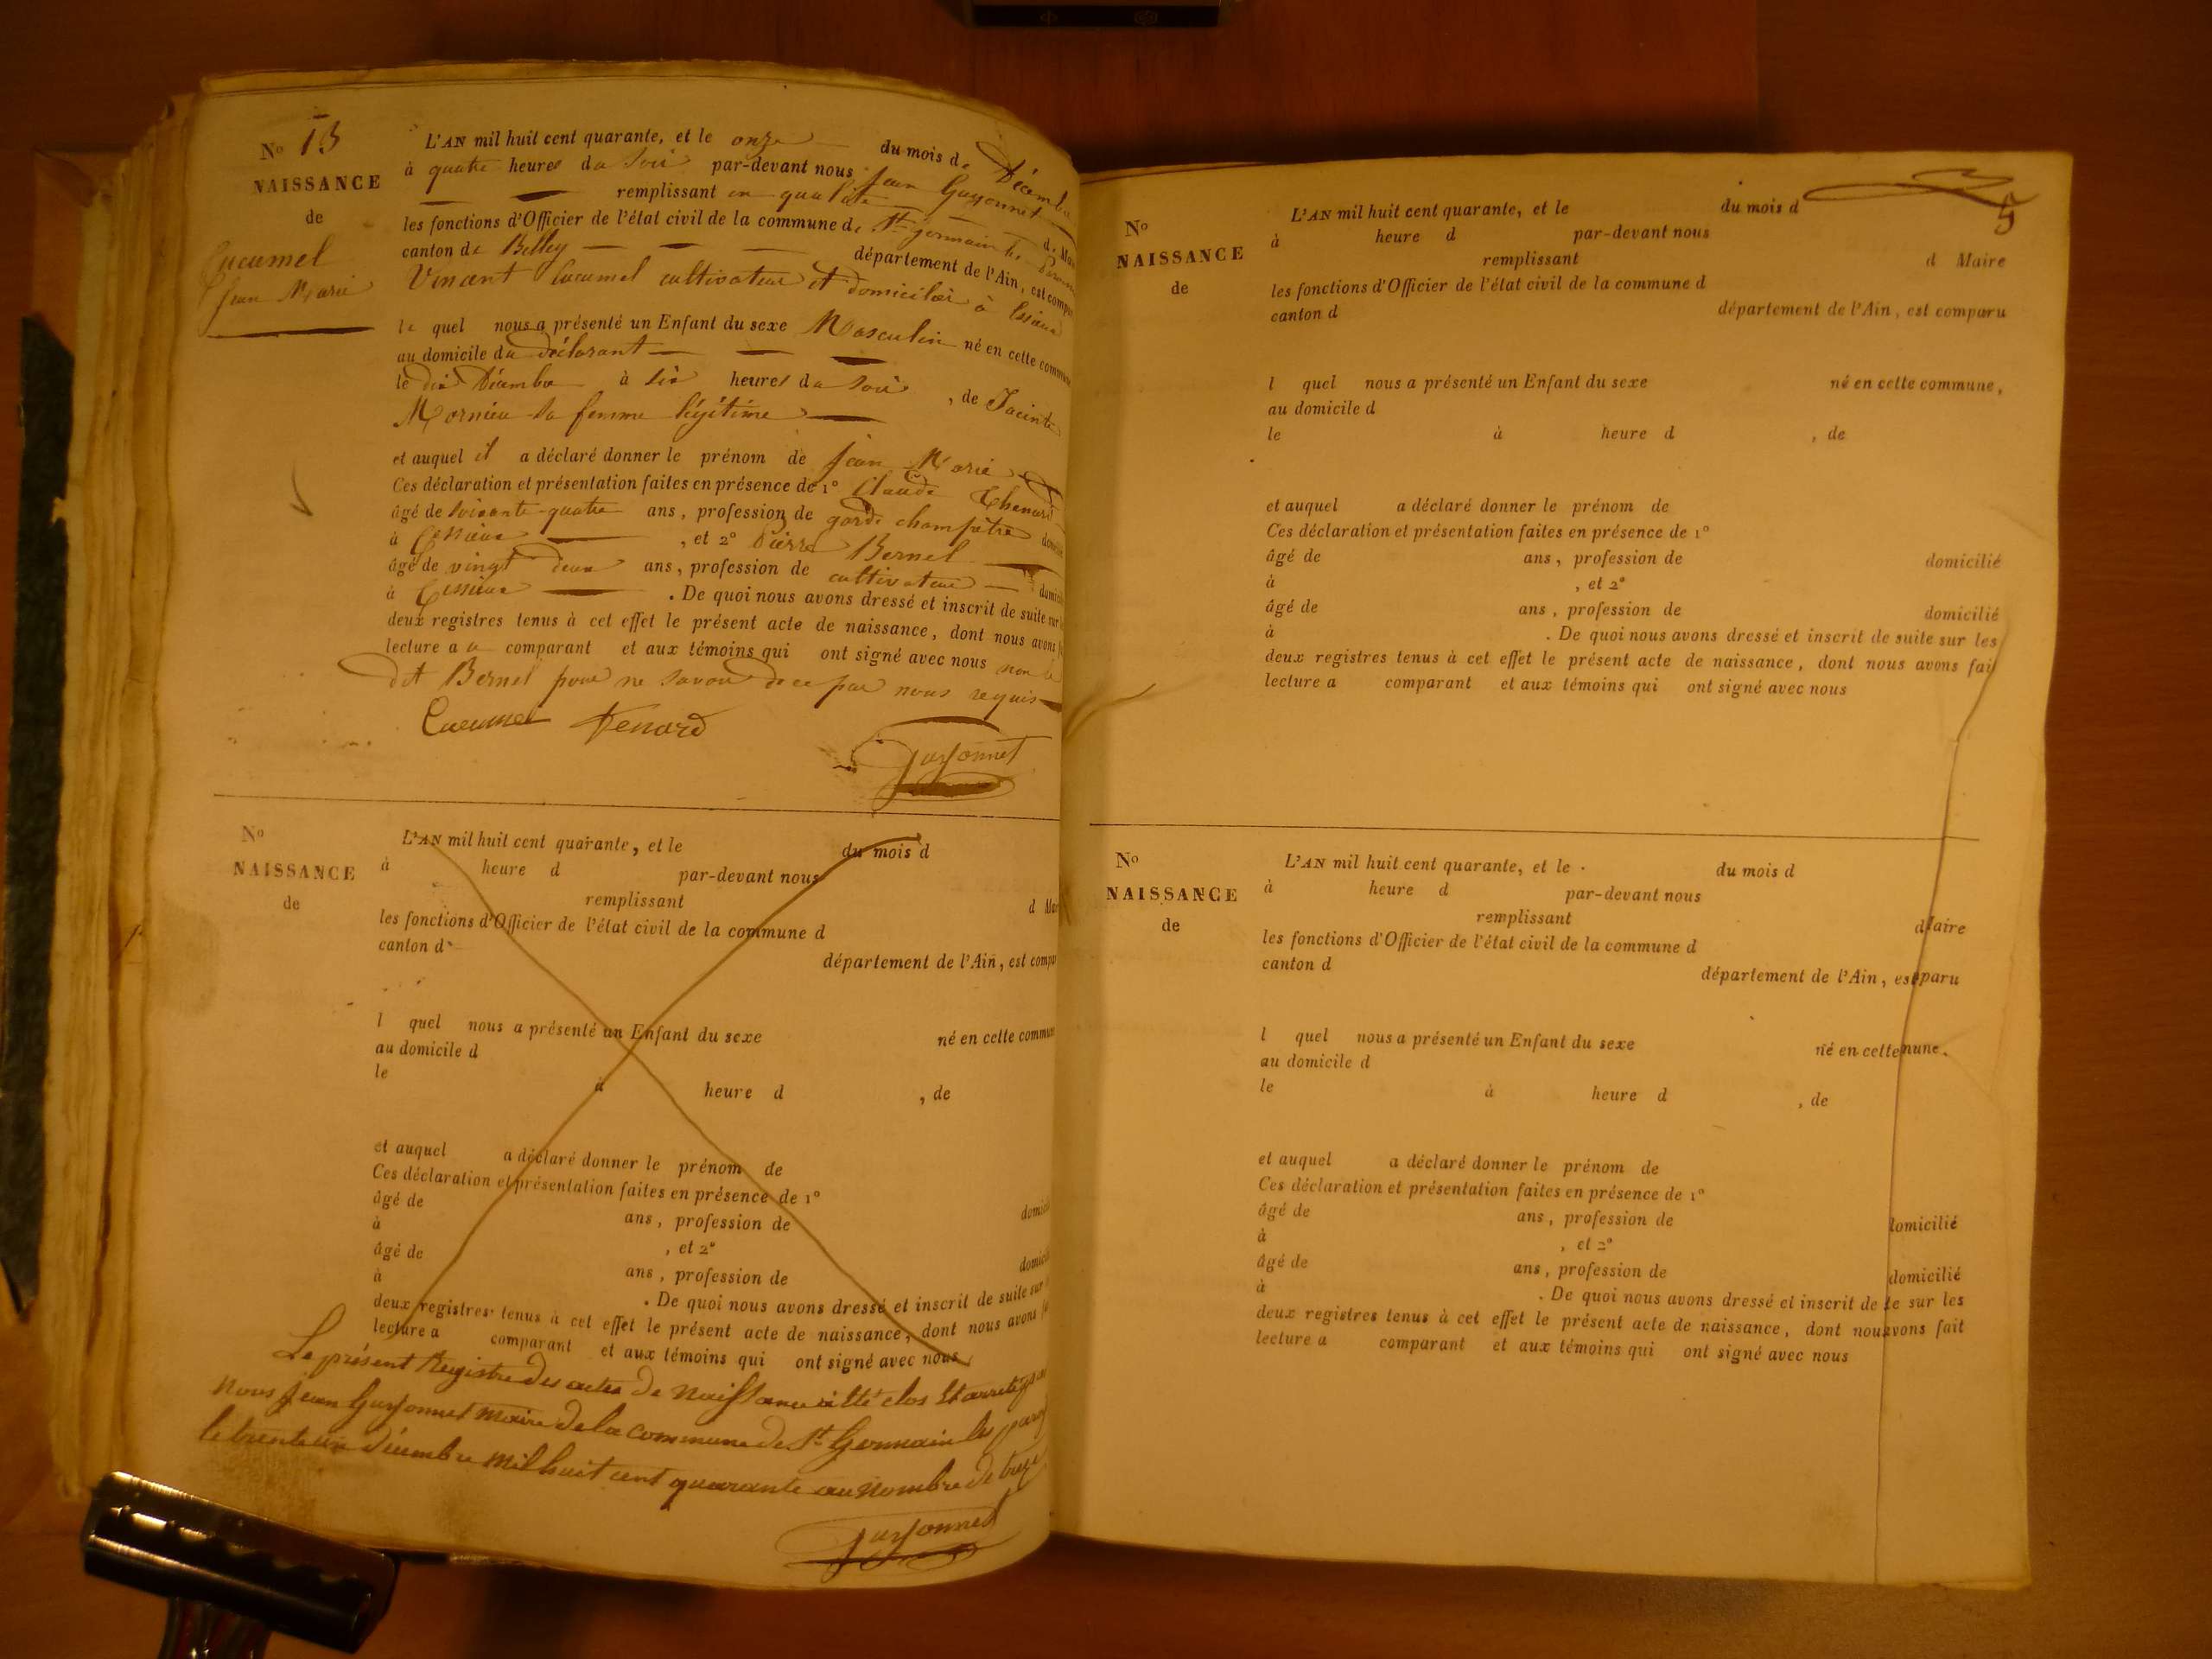 N° 13
NAISSANCE
de
Cucumel
Jean Marie
L'AN mil huit cent quarante, et le onze du mois de Décembre
à quatre heures du soir par-devant nous Jean Guyonnet
remplissant en qualité de Maire
les fonctions d'Officier de l'état civil de la commune de St germain les
canton de Belley département de l'Ain, est comparu
Vincent Cucumel cultivateur et domicilié à Essieux
le quel nous a présenté un Enfant du sexe Masculin né en cette commune
au domicile du déclarant
le dix Décembre à six heures du soir, de Jacinte
Mornieu sa femme légitime
et auquel il a déclaré donner le prénom de Jean Marie
Ces déclaration et présentation faites en présence de 1° Claude Thenard
âgé de soixante-quatre ans, profession de garde champêtre domicilié
à Cessieux, et 2° Pierre Bernel
âgé de vingt deux ans, profession de cultivateur domicilié
à Cessieux. De quoi nous avons dressé et inscrit de suite sur
deux registres tenus à cet effet le présent acte de naissance, dont nous avons
lecture au comparant et aux témoins qui ont signé avec nous non le
dit Bernel pour ne savoir de ce par nous requis
Cucumel Tenard
Guyonnet
N°
NAISSANCE
de
L'AN mil huit cent quarante, et le du mois d
à heure d par-devant nous
remplissant d Mai
les fonctions d'Officier de l'état civil de la commune d
canton d département de l'Ain, est compa
l quel nous a présenté un Enfant du sexe né en cette commun
au domicile d
le à heure d , de
et auquel a déclaré donner le prénom de
Ces déclaration et présentation faites en présence de 1°
âgé de ans, profession de domicil
à , et 2°
âgé de ans, profession de domicil
à . De quoi nous avons dressé et inscrit de suite sur
deux registres tenus à cet effet le présent acte de naissance, dont nous avons
lecture a comparant et aux témoins qui ont signé avec nous
Le présent Registre des actes de naissance a été clos et arrêté par
nous Jean Guyonnet maire de la commune de St Germain les parois
le trente un décembre mil huit cent quarante au nombre de treize
Guyonnet
5
N°
NAISSANCE
de
L'AN mil huit cent quarante, et le du mois d
à heure d par-devant nous
remplissant d Maire
les fonctions d'Officier de l'état civil de la commune d
canton d département de l'Ain, est comparu
l quel nous a présenté un Enfant du sexe né en cette commune,
au domicile d
le à heure d , de
et auquel a déclaré donner le prénom de
Ces déclaration et présentation faites en présence de 1°
âgé de ans, profession de domicilié
à , et 2°
âgé de ans, profession de domicilié
à . De quoi nous avons dressé et inscrit de suite sur les
deux registres tenus à cet effet le présent acte de naissance, dont nous avons fait
lecture a comparant et aux témoins qui ont signé avec nous
N°
NAISSANCE
de
L'AN mil huit cent quarante, et le du mois d
à heure d par-devant nous
remplissant d Maire
les fonctions d'Officier de l'état civil de la commune d
canton d département de l'Ain, est paru
l quel nous a présenté un Enfant du sexe né en cette mune.
au domicile d
le à heure d , de
et auquel a déclaré donner le prénom de
Ces déclaration et présentation faites en présence de 1°
âgé de ans, profession de domicilié
à , et 2°
âgé de ans, profession de domicilié
à . De quoi nous avons dressé et inscrit de te sur les
deux registres tenus à cet effet le présent acte de naissance, dont nous avons fait
lecture a comparant et aux témoins qui ont signé avec nous